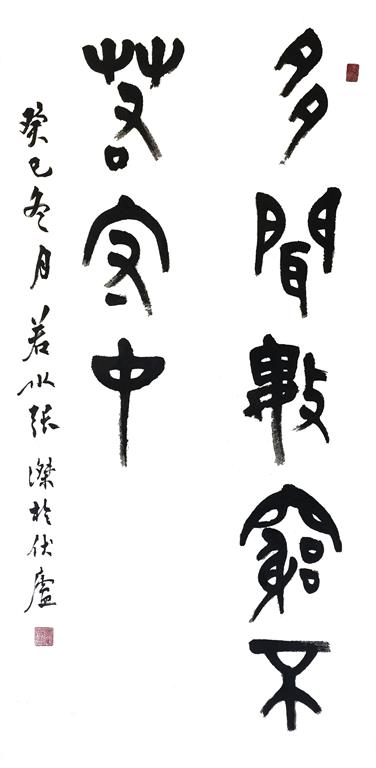 多聞數窮不
若守中
癸巳冬月若水張傑於伏廬